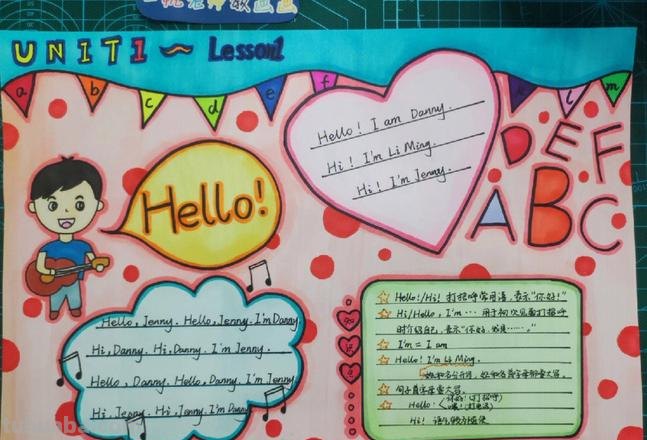 老师教画画
UNIT1 ~ Lesson1
a b c d e f k l m
Hello! I am Danny.
Hi! I'm Li Ming.
Hi! I'm Jenny.
DEF
ABC
Hello!
Hello, Jenny. Hello, Jenny. I'm Danny.
Hi, Danny. Hi, Danny. I'm Jenny.
Hello, Danny. Hello, Danny. I'm Jenny.
Hi, Jenny. Hi, Jenny. I'm Danny.
Hello!/Hi! 打招呼常用语,表示"你好!"
Hi/Hello, I'm … 用于初次见面打招呼
时介绍自己,表示"你好,我是……。"
I'm = I am
Hello! I'm Li Ming.
姓和名分开写,姓和名首字母都要大写。
句子首字母要大写。
Hello: 你好!(打招呼)
喂!(打电话)
Hi!